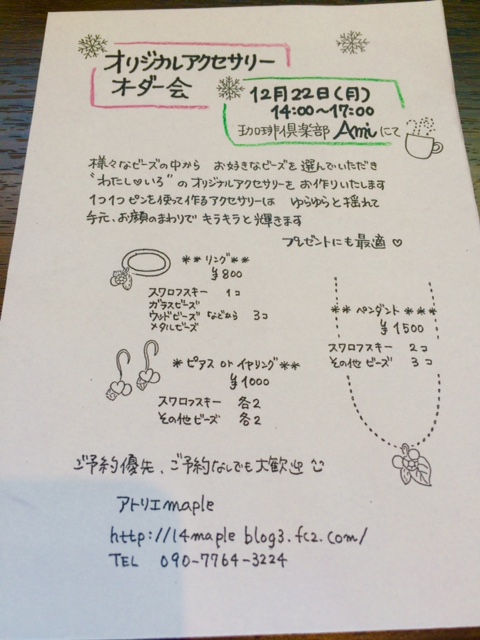 オリジナルアクセサリー
オーダー会
12月22日(月)
14:00〜17:00
珈琲倶楽部 Amiにて
様々なビーズの中から お好きなビーズを選んでいただき
"わたし♡いろ"のオリジナルアクセサリーをお作りいたします
1つ1つピンを使って作るアクセサリーは ゆらゆらと揺れて
手元、お顔のまわりでキラキラと輝きます
プレゼントにも最適♡
**リング**
¥800
スワロフスキー 1コ
ガラスビーズ
ウッドビーズ などから 3コ
メタルビーズ
**ペンダント**
¥1500
スワロフスキー 2コ
その他ビーズ 3コ
*ピアス or イヤリング**
¥1000
スワロフスキー 各2
その他ビーズ 各2
ご予約優先、ご予約なしでも大歓迎
アトリエmaple
http://14maple blog3.fc2.com/
TEL 090-7764-3224